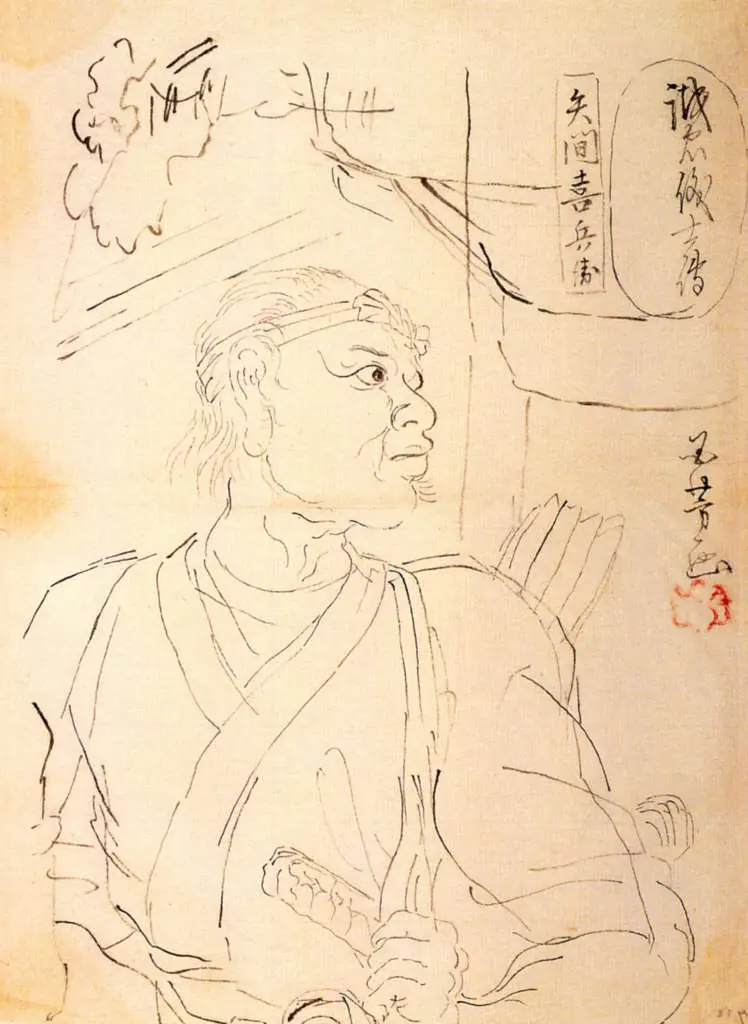 誠忠儀士傳
矢間喜兵衛
国芳画